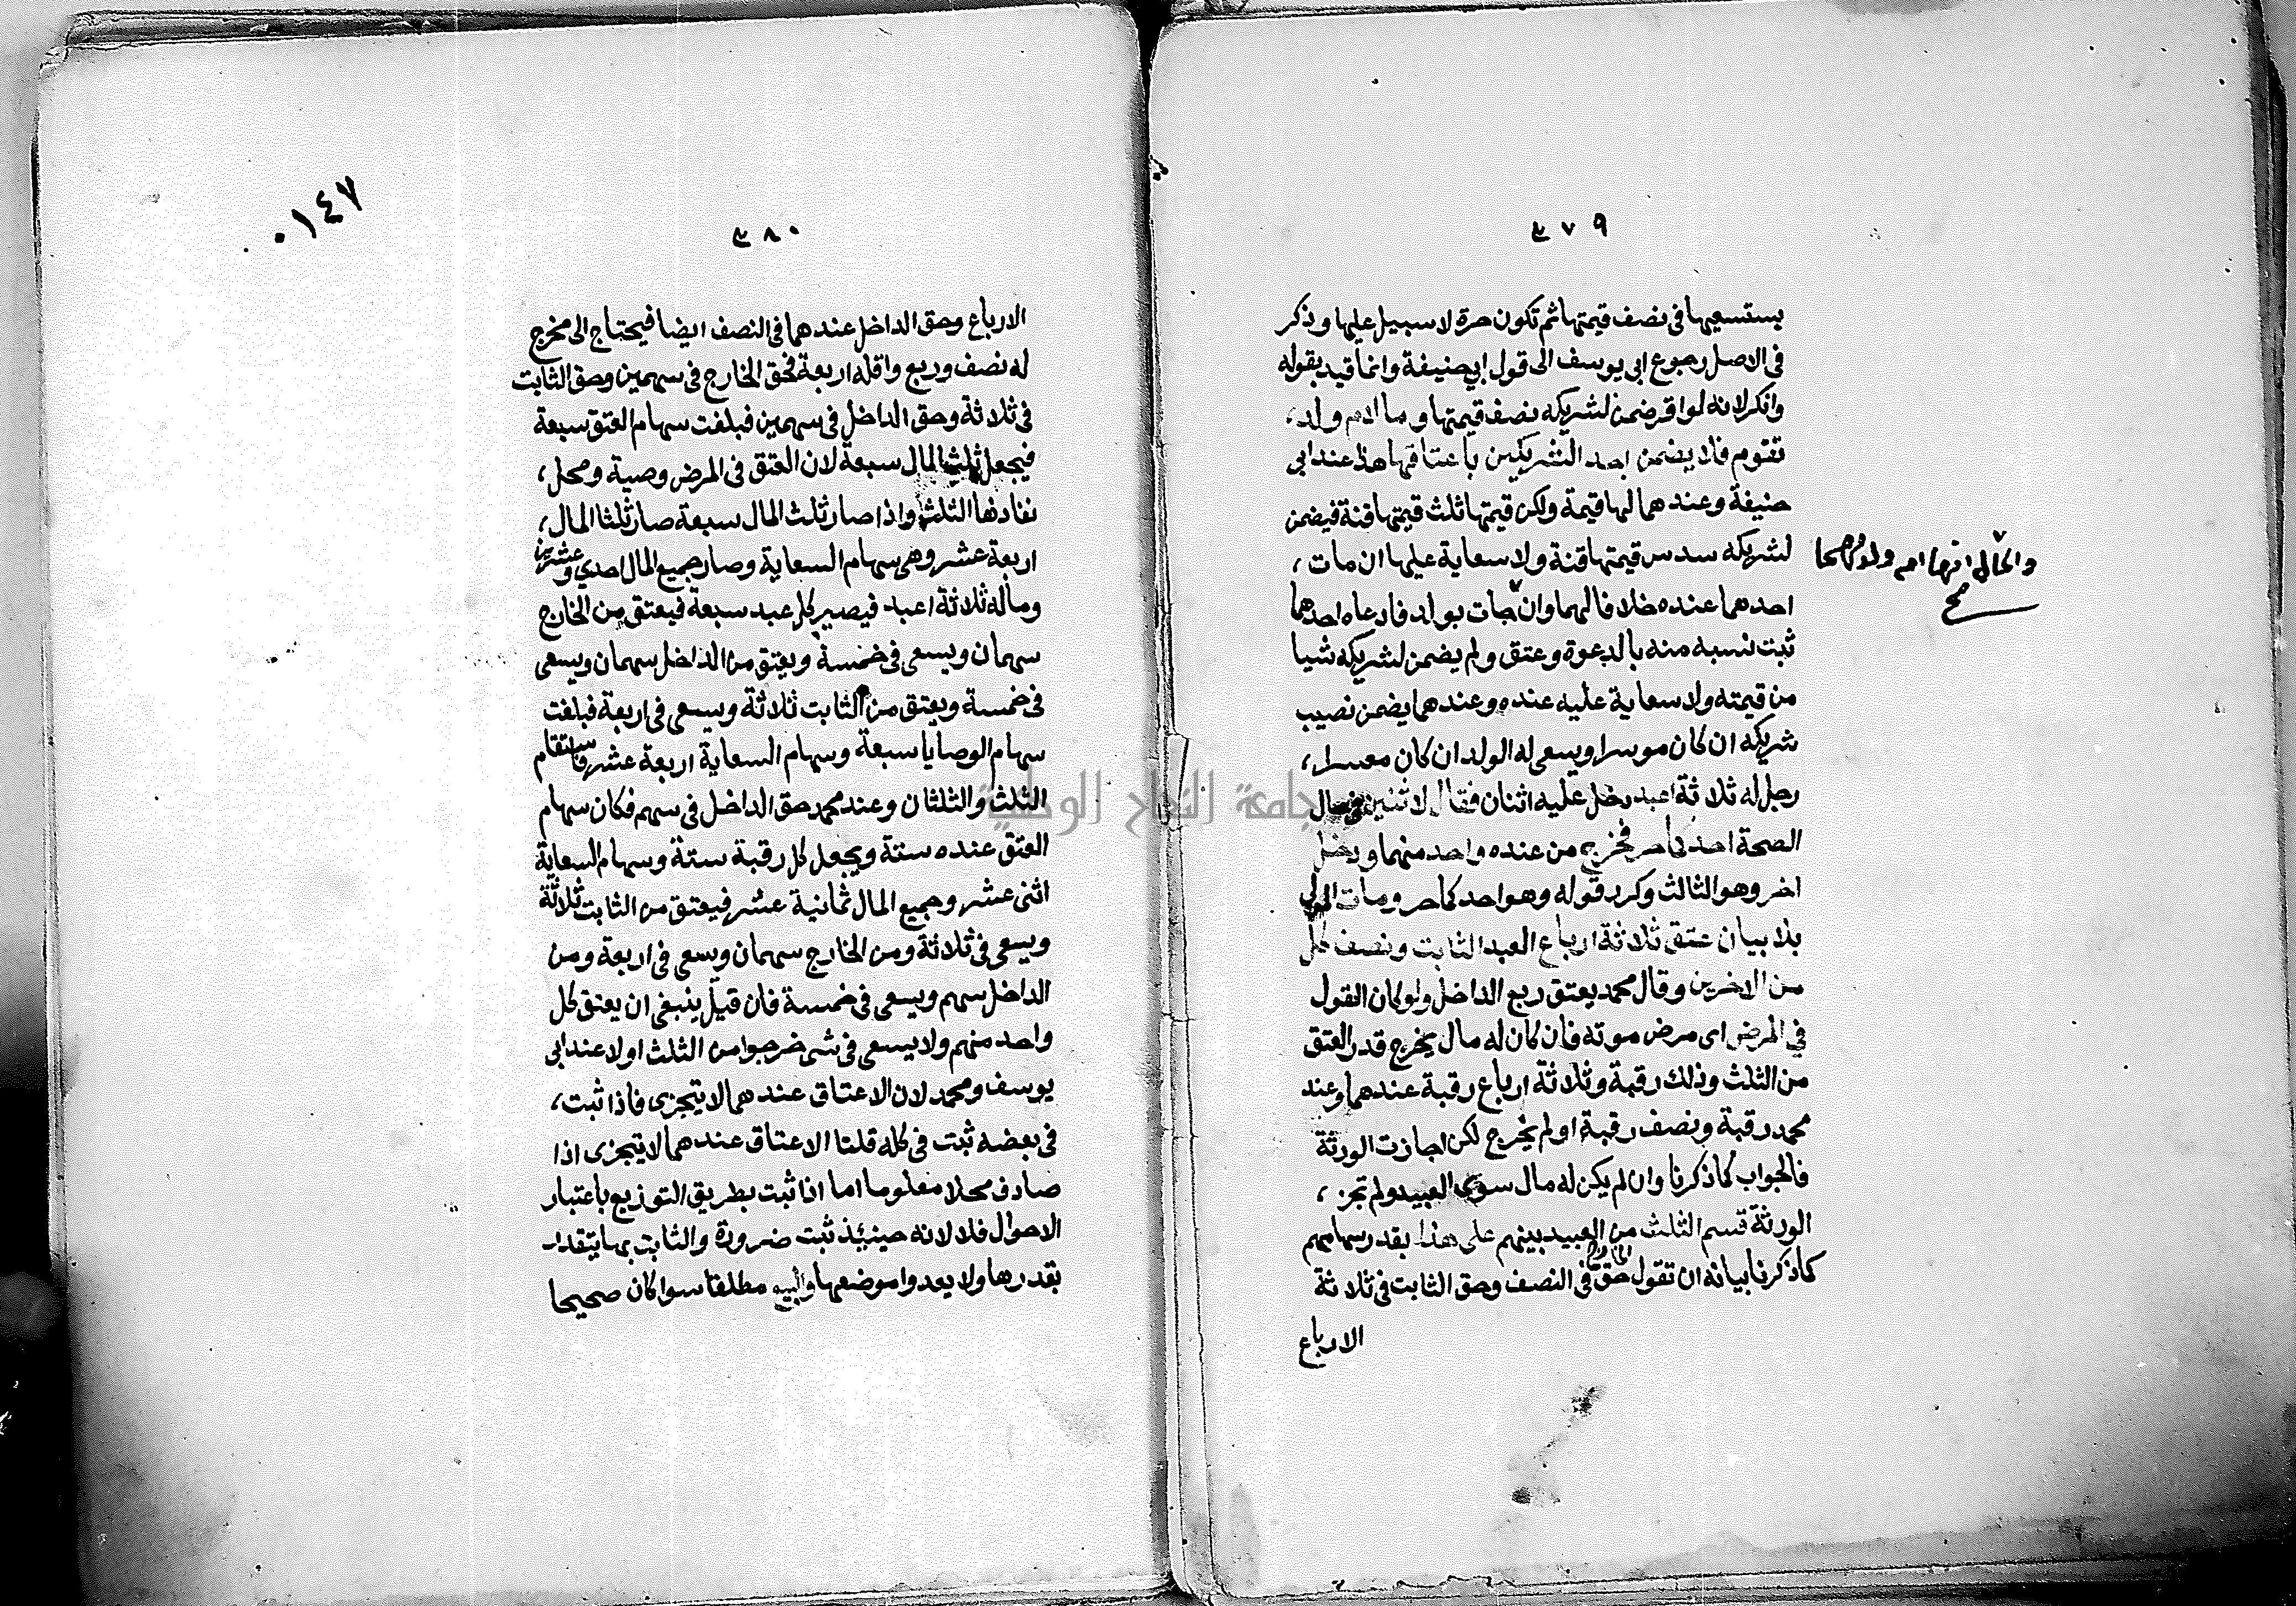 ٣٧٩
يستسعيها في نصف قيمتها ثم تكون حرة لا سبيل عليها وذكر
في الاصل رجوع ابي يوسف الى قول ابي حنيفة وانما قيد بقوله
وانكر لانه لو اقر ضمن لشريكه نصف قيمتها وما لام ولد،
تقوم فلا يضمن احد الشريكين باعتاقها هذا عند ابى
حنيفة وعندهما لها قيمة ولكن قيمتها ثلث قيمتها قنة فيضمن
لشريكه سدس قيمتها قنة ولا سعاية عليها ان مات،
والحال انها ام ولدهما
صح
احدهما عنده خلافا لهما وان جات بولد فادعاه احدهما
ثبت نسبه منه بالدعوة وعتق ولم يضمن لشريكه شيا
من قيمته ولا سعاية عليه عنده وعندهما يضمن نصيب
شريكه ان كان موسرا ويسعى له الولد ان كان معسرا،
رجل له ثلاثة اعبد دخل عليه اثنان فقال لاثنين في حال
الصحة احدكما حر فخرج من عنده واحد منهما ودخل
اخر وهو الثالث وكرر قوله وهو احدكما حر ومات المولى
بلا بيان عتق ثلاثة ارباع العبد الثابت ونصف كل
من الاخرين وقال محمد يعتق ربع الداخل ولو كان القول
في المرض اى مرض موته فان كان له مال يخرج قدر العتق
من الثلث وذلك رقبة وثلاثة ارباع رقبة عندهما وعند
محمد رقبة ونصف رقبة او لم يخرج لكن اجازت الورثة
فالجواب كما ذكرنا وان لم يكن له مال سوى العبيد ولم تجز،
الورثة قسم الثلث من العبيد بينهم على هذا بقدر سهامهم
كما ذكرنا بيانه ان تقول حق الخارج في النصف وحق الثابت في ثلاثة
الارباع
٠١٤٧
٣٨٠
الارباع وحق الداخل عندهما في النصف ايضا فيحتاج الى مخرج
له نصف وربع واقله اربعة فحق الخارج في سهمين وحق الثابت
في ثلاثة وحق الداخل في سهمين فبلغت سهام العتق سبعة
فيجعل ثلث المال سبعة لان العتق في المرض وصية ومحل،
نفادها الثلث واذا صار ثلث المال سبعة صار ثلثا المال،
اربعة عشر وهى سهام السعاية وصار جميع المال احدي وعشرين
وماله ثلاثة اعبد فيصير كل عبد سبعة فيعتق من الخارج
سهمان ويسعى في خمسة ويعتق من الداخل سهمان ويسعى
في خمسة ويعتق من الثابت ثلاثة ويسعى في اربعة فبلغت
سهام الوصايا سبعة وسهام السعاية اربعة عشر فاستقام
الثلث والثلثان وعند محمد حق الداخل في سهم فكان سهام
العتق عنده ستة ويجعل كل رقبة ستة وسهام السعاية
اثنى عشر وجميع المال ثمانية عشر فيعتق من الثابت ثلاثة
ويسعى في ثلاثة ومن الخارج سهمان ويسعى في اربعة ومن
الداخل سهم ويسعى في خمسة فان قيل ينبغى ان يعتق كل
واحد منهم ولا يسعى في شى خرجوا من الثلث اولا عند ابى
يوسف ومحمد لان الاعتاق عندهما لا يتجزى فاذا ثبت،
في بعضه ثبت في كله قلنا الاعتاق عندهما لا يتجزى اذا
صادف محلا معلوما اما اذا ثبت بطريق التوزيع باعتبار
الاحوال فلا لانه حينئذ ثبت ضرورة والثابت بها يتقدر
بقدرها ولا يعدوا موضعها والبيع مطلقا سوا كان صحيحا
جامعة النجاح الوطنية